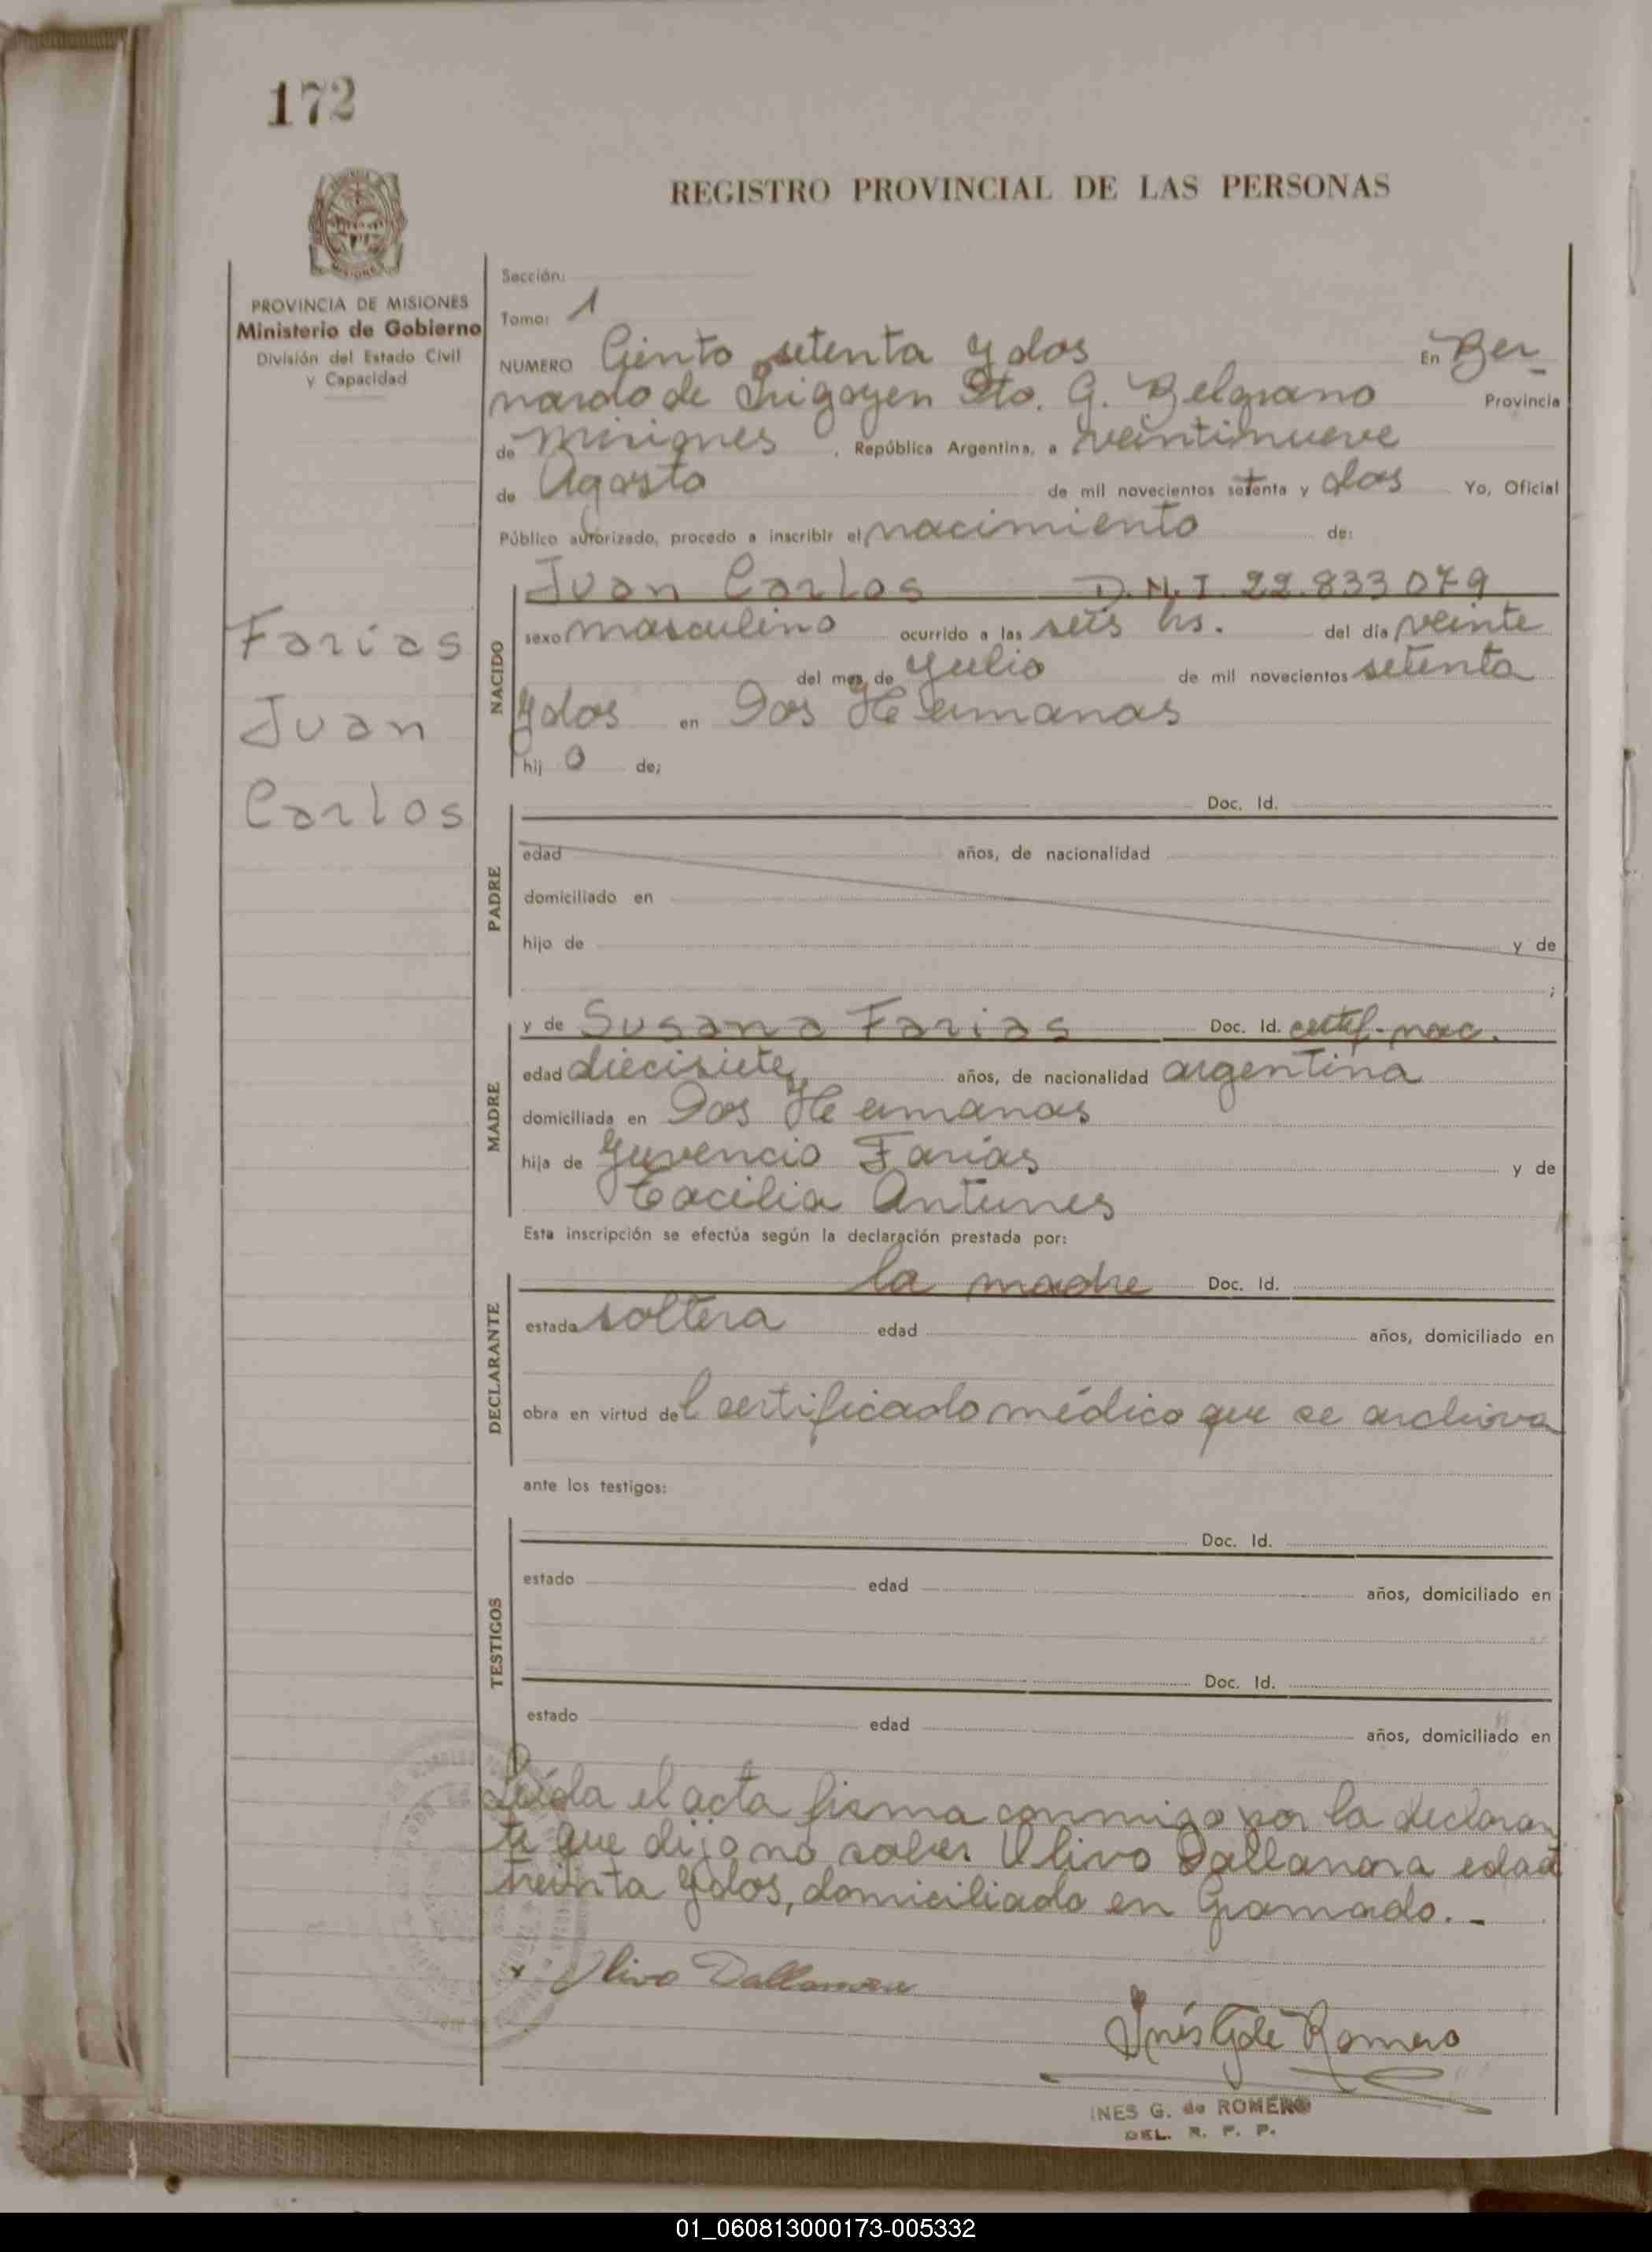 172
REGISTRO PROVINCIAL DE LAS PERSONAS
PROVINCIA DE MISIONES
Ministerio de Gobierno
División del Estado Civil
y Capacidad
Sección:
Tomo: 1
NUMERO Ciento setenta y dos En Ber-
nardo de Irigoyen Dto. G. Belgrano Provincia
de Misiones, República Argentina, a veintinueve
de Agosto de mil novecientos setenta y dos Yo, Oficial
Público autorizado, procedo a inscribir el nacimiento de:
Farias
Juan
Carlos
NACIDO
Juan Carlos D.N.I 22.833 079
sexo masculino ocurrido a las seis hs. del día veinte
del mes de Julio de mil novecientos setenta
y dos en Dos Hermanas
hij o de;
PADRE
Doc. Id.
edad años, de nacionalidad
domiciliado en
hijo de y de
;
MADRE
y de Susana Farias Doc. Id. certif. nac.
edad diecisiete años, de nacionalidad argentina
domiciliada en Dos Hermanas
hija de Juvencio Farias y de
Cacilia Antunes
Esta inscripción se efectúa según la declaración prestada por:
DECLARANTE
la madre Doc. Id.
estado soltera edad años, domiciliado en
obra en virtud del certificado médico que se archiva
ante los testigos:
TESTIGOS
Doc. Id.
estado edad años, domiciliado en
Doc. Id.
estado edad años, domiciliado en
Leída el acta firma conmigo por la declaran
te que dijo no saber Olivo Dallanora edad
treinta y dos, domiciliado en Gramado.-
x Olivo Dallanora
Inés G de Romero
INES G. de ROMERO
DEL. R. P. P.
01_060813000173-005332